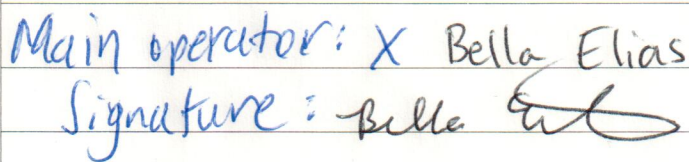 Main operator: X Bella Elias
Signature: Bella